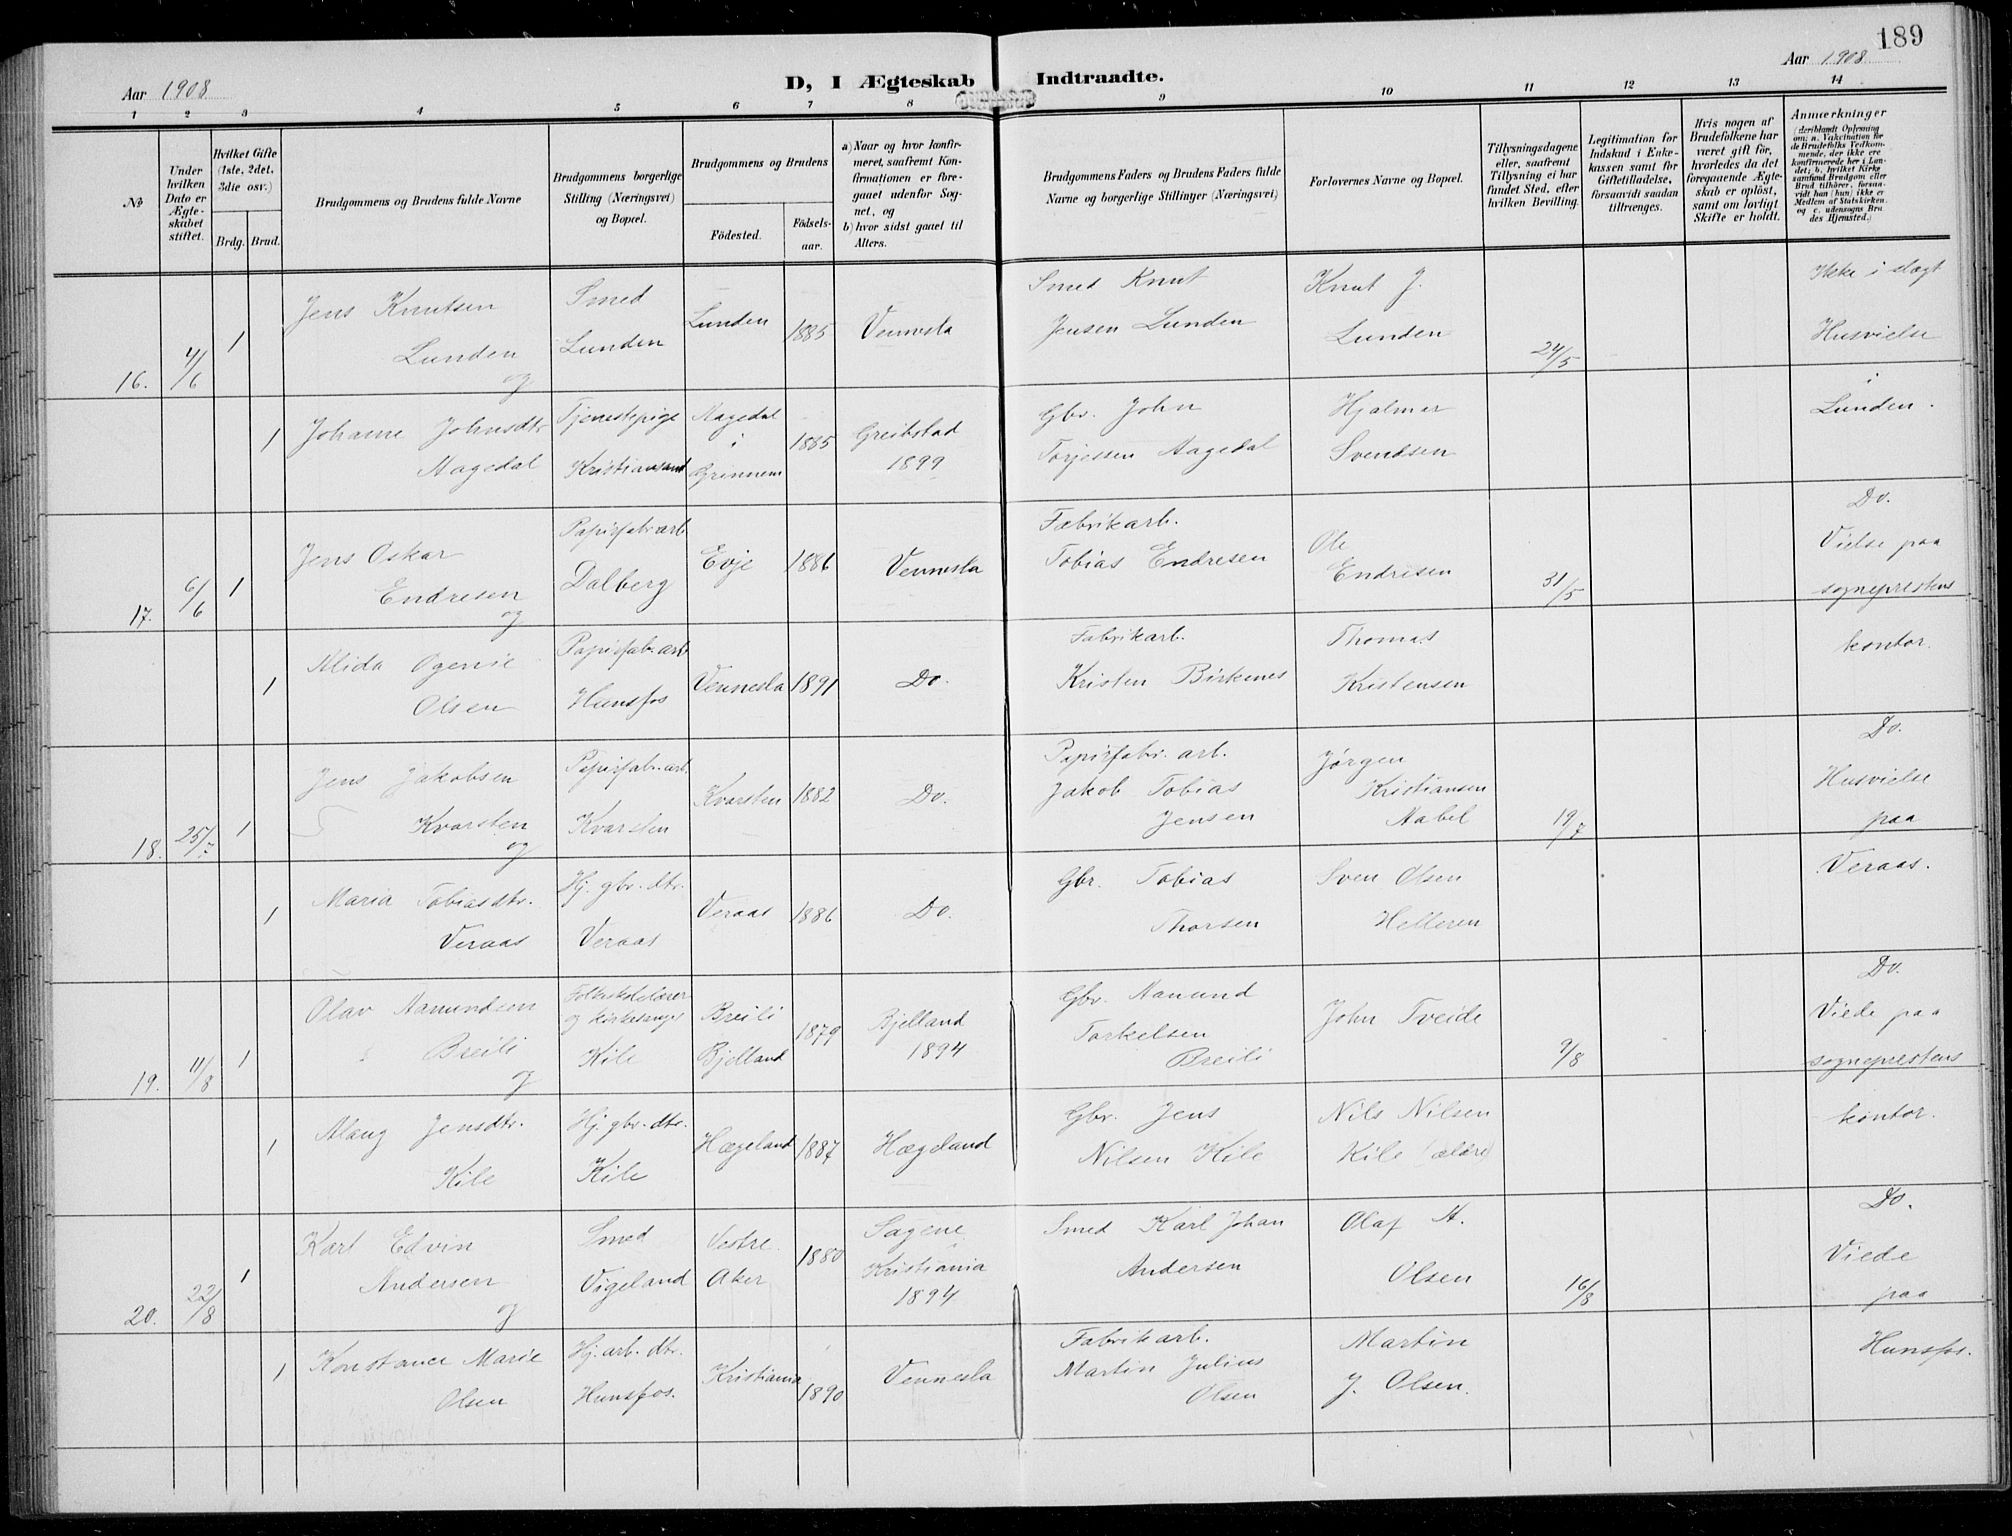 189
Aar 1908
D, I Ægteskab Indtraadte.
Aar 1908
1 2 3 4 5 6 7 8 9 10 11 12 13 14
№
Under hvilken Dato er Ægteskabet stiftet.
Hvilket Gifte (1ste, 2det, 3die osv.)
Brdg. Brud.
Brudgommens og Brudens fulde Navne
Brudgommens borgerlige Stilling (Næringsvei) og Bopæl.
Brudgommens og Brudens
Födested.
Födselsaar.
a) Naar og hvor konfirmeret, saafremt Konfirmationen er foregaaet udenför Sognet, og
b) hvor sidst gaaet til Alters.
Brudgommens Faders og Brudens Faders fulde Navne og borgerlige Stillinger (Næringsvei)
Forlovernes Navne og Bopæl.
Tillysningsdagene eller, saafremt Tillysning ei har fundet Sted, efter hvilken Bevilling.
Legitimation for Indskud i Enkekassen samt for Giftetilladelse, forsaavidt saadan tiltrænges.
Hvis nogen af Brudefolkene har været gift för, hvorledes da det foregaaende Ægteskab er oplöst, samt om lovligt Skifte er holdt.
Anmærkninger
(deriblandt Oplysning om: a. Vakcination for de Brudefolks Vedkommende, der ikke ere konfirmerede her i Landet; b. hvilket Kirkesamfund Brudgom eller Brud tilhörer, forsaavidt han (hun) ikke er Medlem af Statskirken, og c. udensogns Brudes Hjemsted.)
16. 4/6 1 Jens Knutsen Lunden og
Smed Lunden
Lunden 1885 Vennesla
Smed Knut Jensen Lunden
Knut J. Lunden
24/5
Ikke i slægt
Husvielse
i
Lunden.
1 Johanne Johnsdtr. Aagedal
Tjenestepige Kristiansand
Aagedal i Grinnem 1885
Greibstad 1899
Gbr. John Torjessen Aagedal
Hjalmar Svendsen
17. 6/6 1 Jens Oskar Endresen og
Papirfabr.arb. Dalberg
Evje 1886 Vennesla
Fabrikarb. Tobias Endresen
Ole Endresen
31/5
Do.
Vielse paa
sogneprestens
kontor.
1 Alida Ogenie Olsen
Papirfab.arb. Hunsfos
Vennesla 1891 Do.
Fabrikarb. Kristen Birkenes
Thomas Kristensen
18. 25/7 1 Jens Jakobsen Kvarsten og
Papirfab.arb. Kvarsten
Kvarsten 1882 Do.
Papirfabr.arb. Jakob Tobias Jensen
Jørgen Kristiansen Nabel
19/7
Do.
Husvielse
paa
Veraas.
1 Maria Tobiasdtr. Veraas
Hj. gbr. dtr. Veraas
Veraas 1886 Do.
Gbr. Tobias Thorsen
Sven Olsen Helleren
19. 11/8 1 Olav Aamundsen Breili og
Folkeskolelærer og kirkesanger Kile
Breili Bjelland 1879
Bjelland 1894
Gbr. Aamund Torkelsen Breili
John Tveide
9/8
Do.
Viede paa
sogneprestens
kontor.
1 Alang Jensdtr. Kile
Hj. gbr. dtr. Kile
Hægeland 1887 Hægeland
Gbr. Jens Nilsen Kile
Nils Nilsen Kile (ældre)
20. 22/8 1 Karl Edvin Andersen og
Smed Vigeland
Vestre Aker 1880
Sagene Kristiania 1894
Smed Karl Johan Andersen
Olaf A. Olsen
16/8
Do.
Viede
paa
Hunsfos.
1 Konstance Marie Olsen
Hj. arb. dtr. Hunsfos.
Kristiania 1890 Vennesla
Fabrikarb. Martin Julius Olsen
Martin J. Olsen.